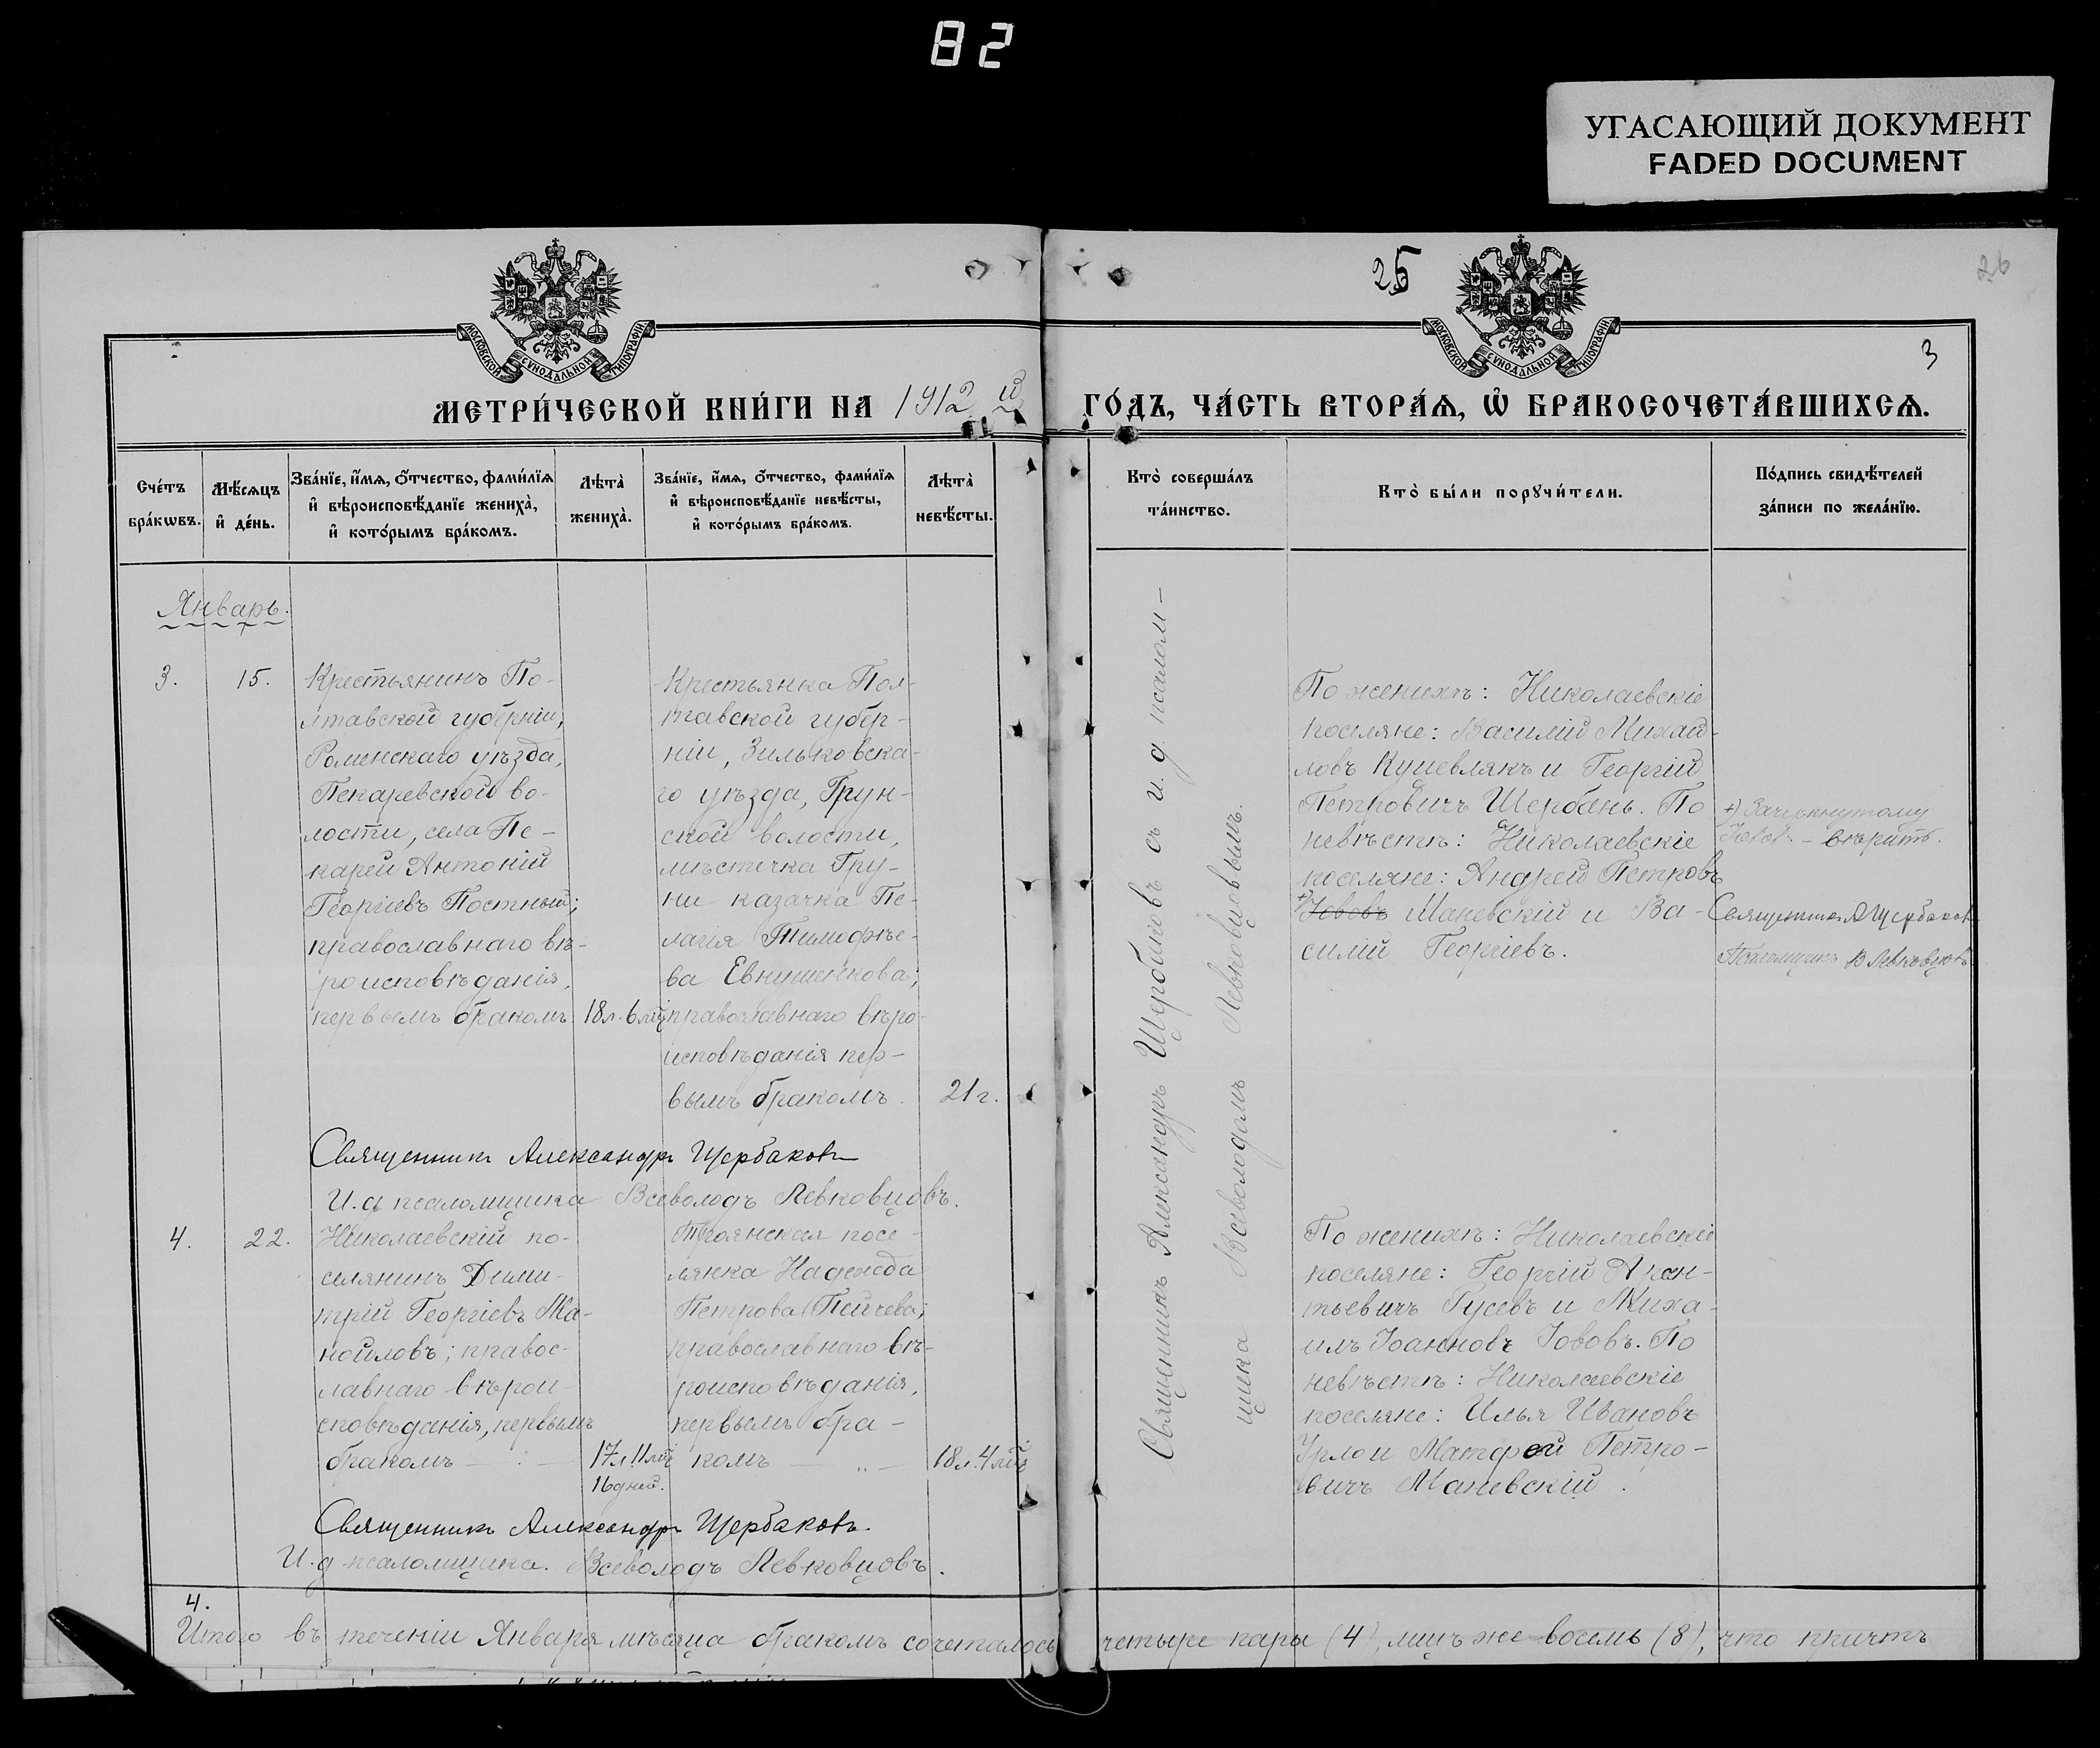 82
УГАСАЮЩИЙ ДОКУМЕНТ
FADED DOCUMENT
25
26
3
МОСКОВСКОЙ СѴНОДАЛЬНОЙ ТИПОГРАФІИ
МОСКОВСКОЙ СѴНОДАЛЬНОЙ ТИПОГРАФІИ
МЕТРИ́ЧЕСКОЙ КНИ́ГИ НА 1912 й
ГО́ДЪ, ЧА́СТЬ ВТОРА́Ѧ, Ѽ БРАКОСОЧЕТА́ВШИХСѦ.
Сче́тъ
бра́кѡвъ.
Мѣ́сѧцъ
и҆ де́нь.
Зва́нїе, и҆́мѧ, ѻ҆́тчество, фами́лїѧ
и҆ вѣроисповѣ́данїе жениха̀,
и҆ кото́рымъ бра́комъ.
Лѣ́та̀
жениха̀.
Зва́нїе, и҆́мѧ, ѻ҆́тчество, фами́лїѧ
и҆ вѣроисповѣ́данїе невѣ́сты,
и҆ кото́рымъ бра́комъ.
Лѣ́та̀
невѣ́сты.
Кто̀ соверша́лъ
та́инство.
Кто̀ бы́ли порꙋчи́тели.
По́дпись свидѣ́телей
за́писи по жела́нїю.
Январь.
3.
15.
Крестьянинъ По-
лтавской губерніи,
Роменскаго уѣзда,
Пекаревской во-
лости, села Пе-
карей Антоній
Георгіевъ Постный;
православнаго вѣ-
роисповѣданія,
первымъ бракомъ
18 л. 6 мц
Крестьянка Пол-
тавской губер-
ніи, Зильковска-
го уѣзда, Грун-
ской волости,
мѣстечка Гру-
ни казачка Пе-
лагія Тимофѣе-
ва Евнушенкова;
православнаго вѣро-
исповѣданія пер-
вымъ бракомъ.
21 г.
Священникъ Александръ Щербаковъ
И. д. псаломщика Всеволодъ Левковцовъ.
Священникъ Александръ Щербаковъ съ и. д. псалом-
щика Всеволодомъ Левковцовымъ.
По женихѣ: Николаевскіе
поселяне: Василій Михай-
ловъ Кушевлякъ и Георгій
Петровичъ Щербань. По
невѣстѣ: Николаевскіе
поселяне: Андрей Петровъ
+) Іововъ Маневскій и Ва-
силій Георгіевъ.
+) Зачеркнутому
Іовов. - вѣрить.
Священникъ А Щербаков
Псаломщикъ В Левковцовъ
4.
22.
Николаевскій по-
селянинъ Дими-
трій Георгіевъ Ма-
нойловъ; правос-
лавнаго вѣрои-
сповѣданія, первымъ
бракомъ
17 л. 11 мц
16 дней.
Троянская посе-
лянка Надежда
Петрова Пейчева;
православнаго вѣ-
роисповѣданія,
первымъ бра-
комъ
18 л. 4 мц
По женихѣ: Николаевскіе
поселяне: Георгій Арсен-
тьевичъ Гусевъ и Миха-
илъ Іоанновъ Іововъ. По
невѣстѣ: Николаевскіе
поселяне: Илья Ивановъ
Урлои Матфей Петро-
вичъ Маневскій.
Священникъ Александръ Щербаковъ.
И. д. псаломщика. Всеволодъ Левковцовъ.
4.
Итого въ теченіи Января мѣсяца бракомъ сочеталось четыре пары (4), лицъ же восемь (8), что причтъ